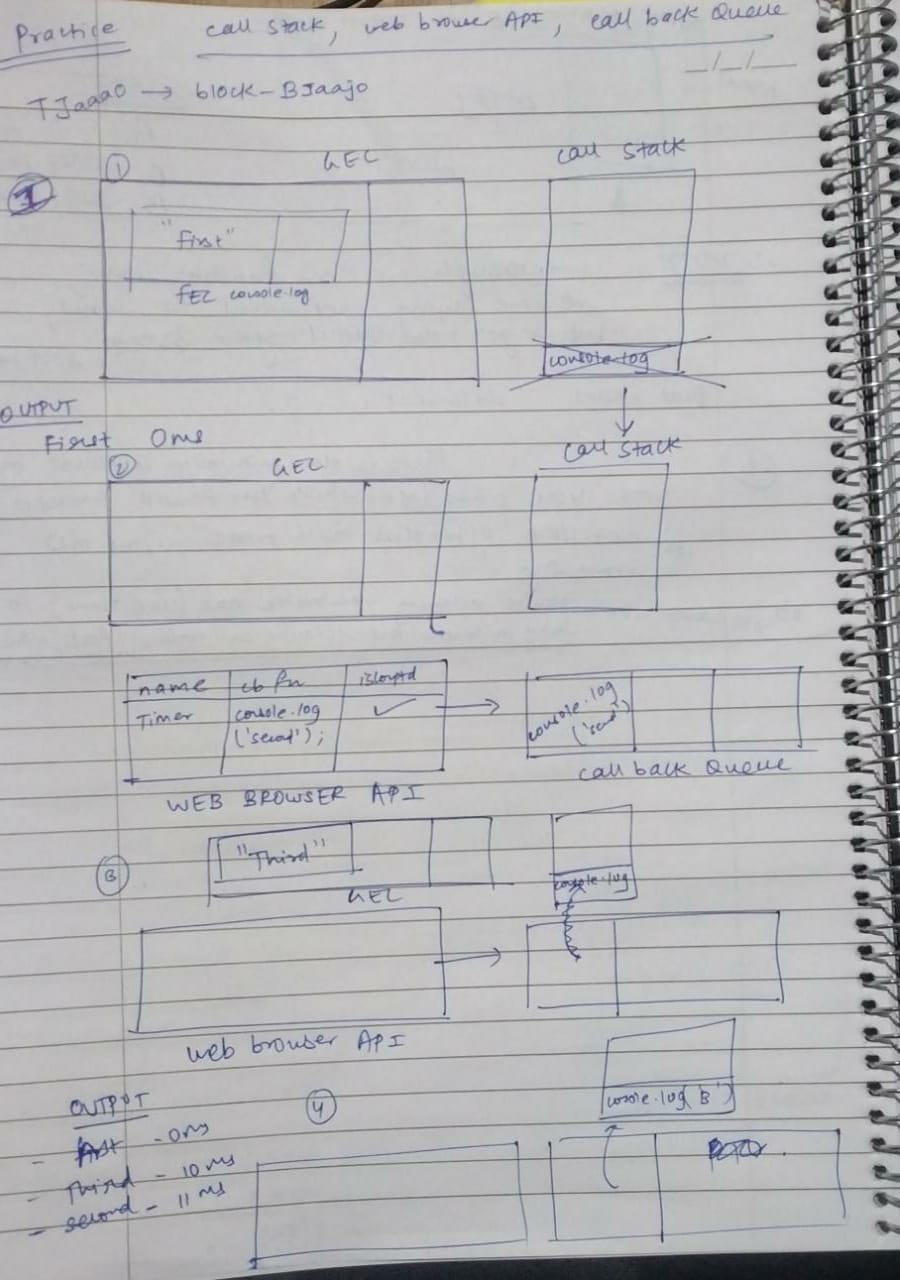 Practice call stack, web browser API, call back Queue
TJaaao → block-BJaajo
① GEC call stack
1
"first"
FEC console.log
console.log
OUTPUT
First 0ms
② GEC call stack
name cb fn
Timer console.log
console.log
callback Queue
WEB BROWSER API
③ "Third"
console.log
GEC
web browser API
OUTPUT ④
console.log('B')
- first - 0ms
- Third - 10 ms
- second - 11 ms